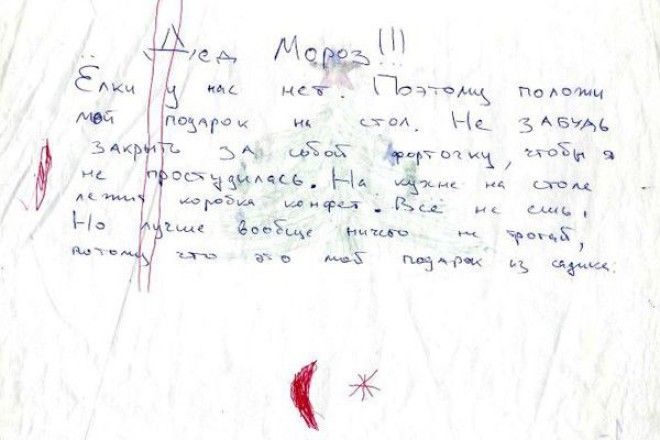 Дед Мороз!!!
Ёлки у нас нет. Поэтому положи
мой подарок на стол. Не ЗАБУДЬ
ЗАКРЫТЬ ЗА собой форточку, чтобы я
не простудилась. На кухне на столе
лежит коробка конфет. Всё не ешь,
Но лучше вообще ничего не трогай,
потому что это мой подарок из садика.